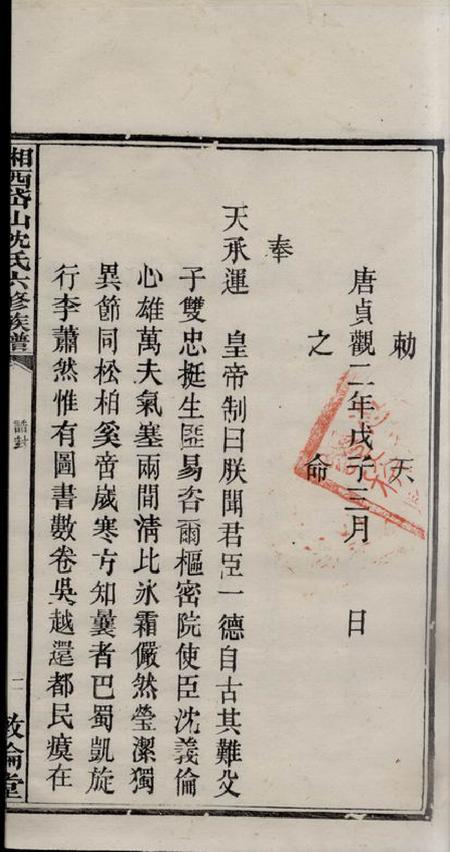 勅 天
唐貞觀二年戊子三月 日
之 命
奉
天承運 皇帝制曰朕聞君臣一德自古其難父
子雙忠挺生匪易咨爾樞密院使臣沈義倫
心雄萬夫氣塞兩間清比冰霜儼然瑩潔獨
異節同松柏奚啻歲寒方知曩者巴蜀凱旋
行李蕭然惟有圖書數卷吳越還都民瘼在
湘西山沈氏六修族譜 誥封 二 敦倫堂